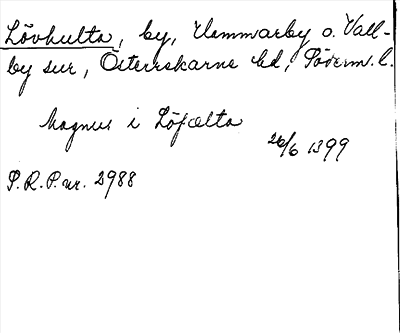 Lövhulta, by, Hammarby o. Vall-
by snr, Österrekarne hd, Söderm. l.
Magnus i Löfælta
26/6 1399
S.R.P. nr. 2988